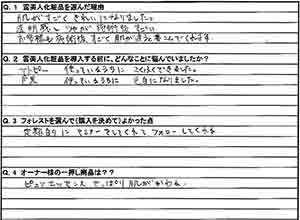 Q.1 雲英人化粧品を選んだ理由
肌がすごく きれいになりました。
透明感と つやが
お客様も 施術後、すごく肌が違うと喜んでくれます。
Q.2 雲英人化粧品を導入する前に、どんなことに悩んでいましたか？
アトピー 使っているうちに
使っているうちに 色白になりました。
Q.3 フォレストを選んで（購入を決めて）よかった点
定期的に セミナーをしてくれて フォローしてくれる
Q.4 オーナー様の一押し商品は？？
ピュアエッセンス やっぱり 肌がかわる。